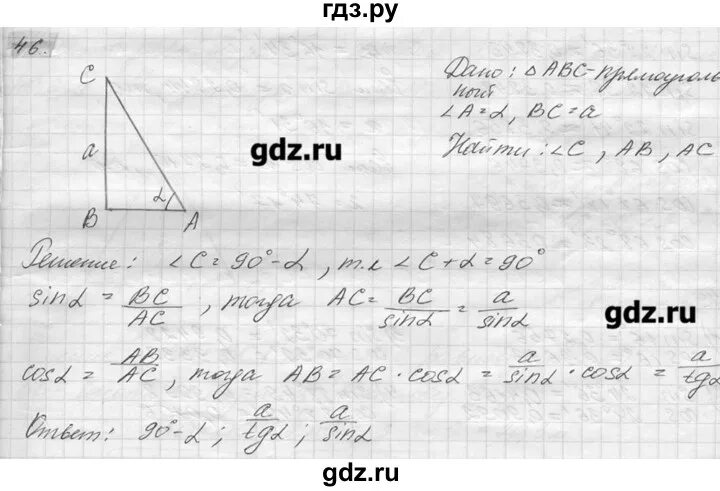 гдз.ру
46.
C
a
α
B
A
Дано: △ABC-прямоуголь
ный
∠A=α, BC=a
Найти: ∠C, AB, AC
gdz.ru
Решение: ∠C=90°-α, т.к ∠C+α=90°
sinα = BC/AC, тогда AC= BC/sinα = a/sinα
gdz.ru
cosα = AB/AC, тогда AB = AC · cosα = a/sinα · cosα = a/tgα
Ответ: 90°-α; a/tgα; a/sinα
gdz.ru